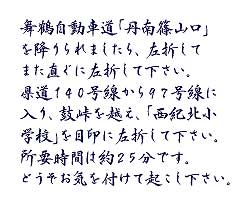 舞鶴自動車道「丹南篠山口」
を降りられましたら、左折して
また直ぐに左折して下さい。
県道140号線から97号線に
入り、鼓峠を越え、「西紀北小
学校」を目印に左折して下さい。
所要時間は約25分です。
どうぞお気を付けて起こし下さい。